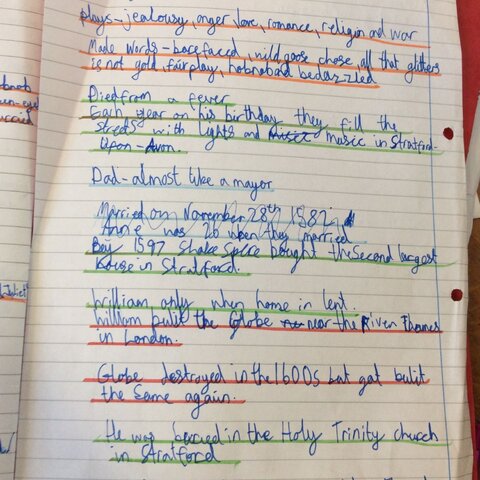 plays - jealousy, anger, love, romance, religion and war
Made words - barefaced, wild goose chase, all that glitters
is not gold, fairplay, hobnob and bedazzled
Died from a fever
Each year on his birthday they fill the
streets with lights and music in Stratford-
Upon-Avon.
Dad - almost like a mayor
Married on November 28th 1582.
Annie was 26 when they married
By 1597 Shakespire bought the second largest
house in Stratford.
William only when home in lent.
William bulit the Globe near the River Thames
in London.
Globe destroyed in the 1600s but got bulit
the same again.
He was berried in the Holy Trinity church
in Stratford